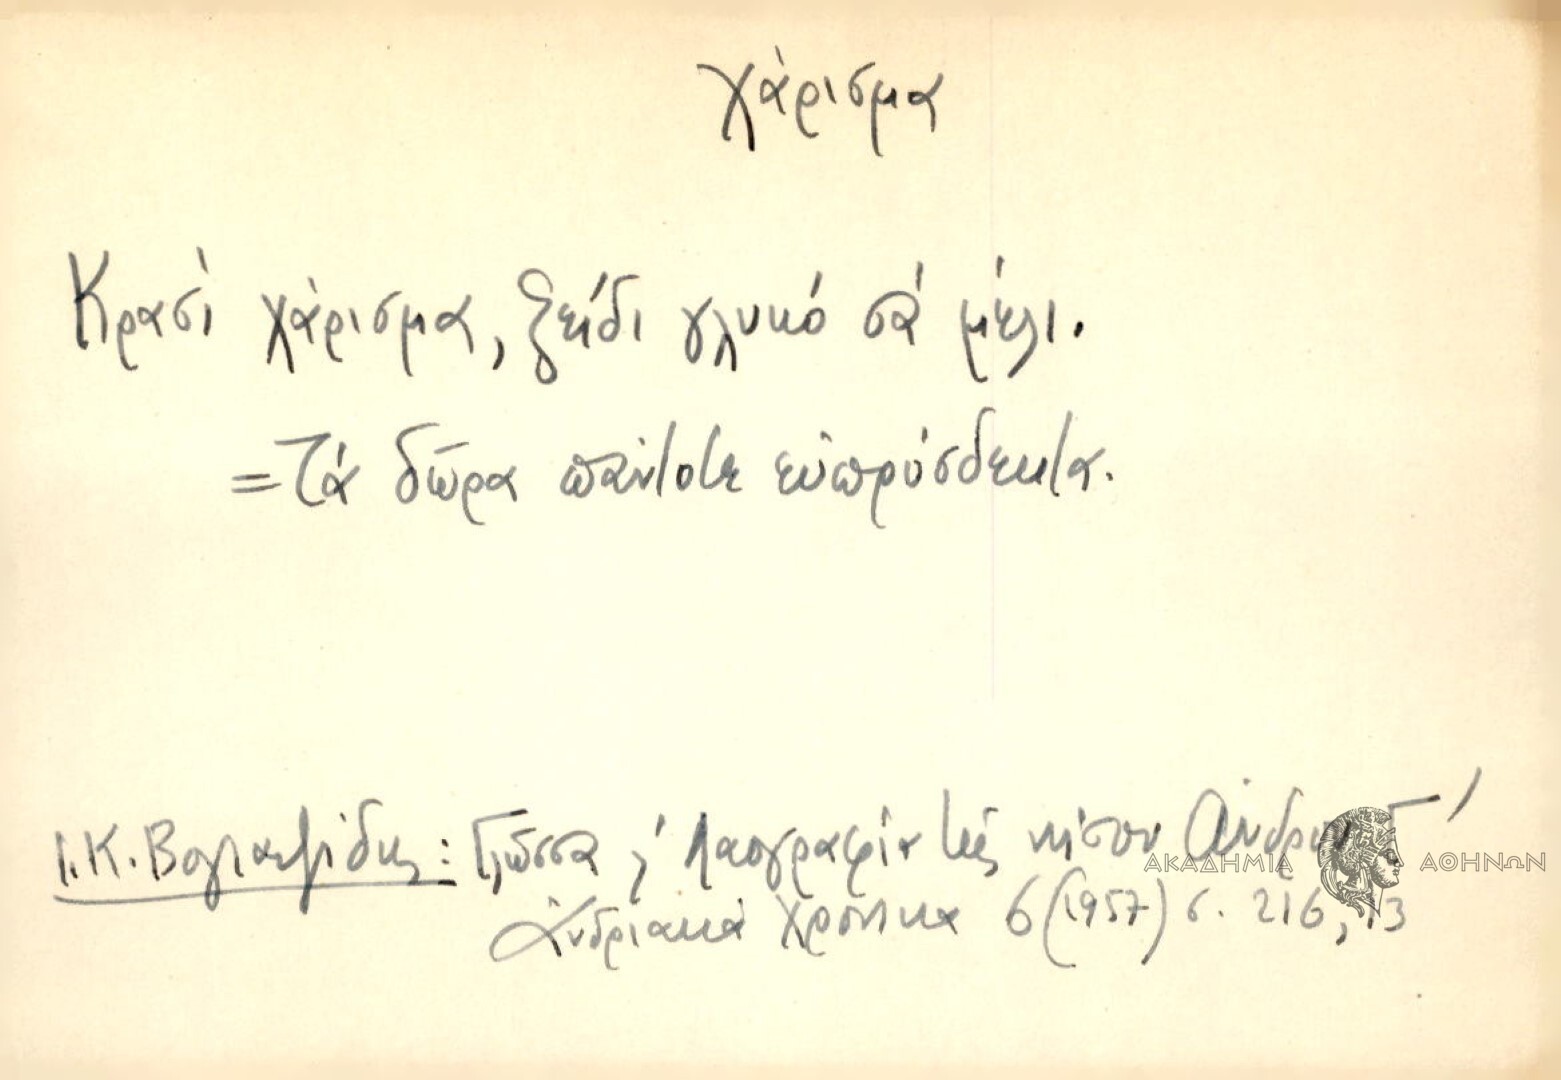 χάρισμα
Κρασὶ χάρισμα, ξείδι γλυκό σά μέλι.
= Τά δῶρα πάντοτε εὐπρόσδεκτα.
Ι. Κ. Βογιατζίδης: Γλῶσσα καί Λαογραφία τῆς νήσου Ἄνδρου Γ'
ΑΚΑΔΗΜΙΑ ΑΘΗΝΩΝ
Ἀνδριακά Χρονικα 6 (1957) σ. 216, 13